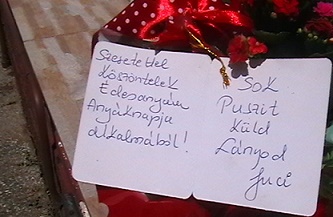 Szeretettel
Köszöntelek
Édesanyám
Anyáknapja
alkalmából!
Sok
Puszit
Küld
Lányod
Juci